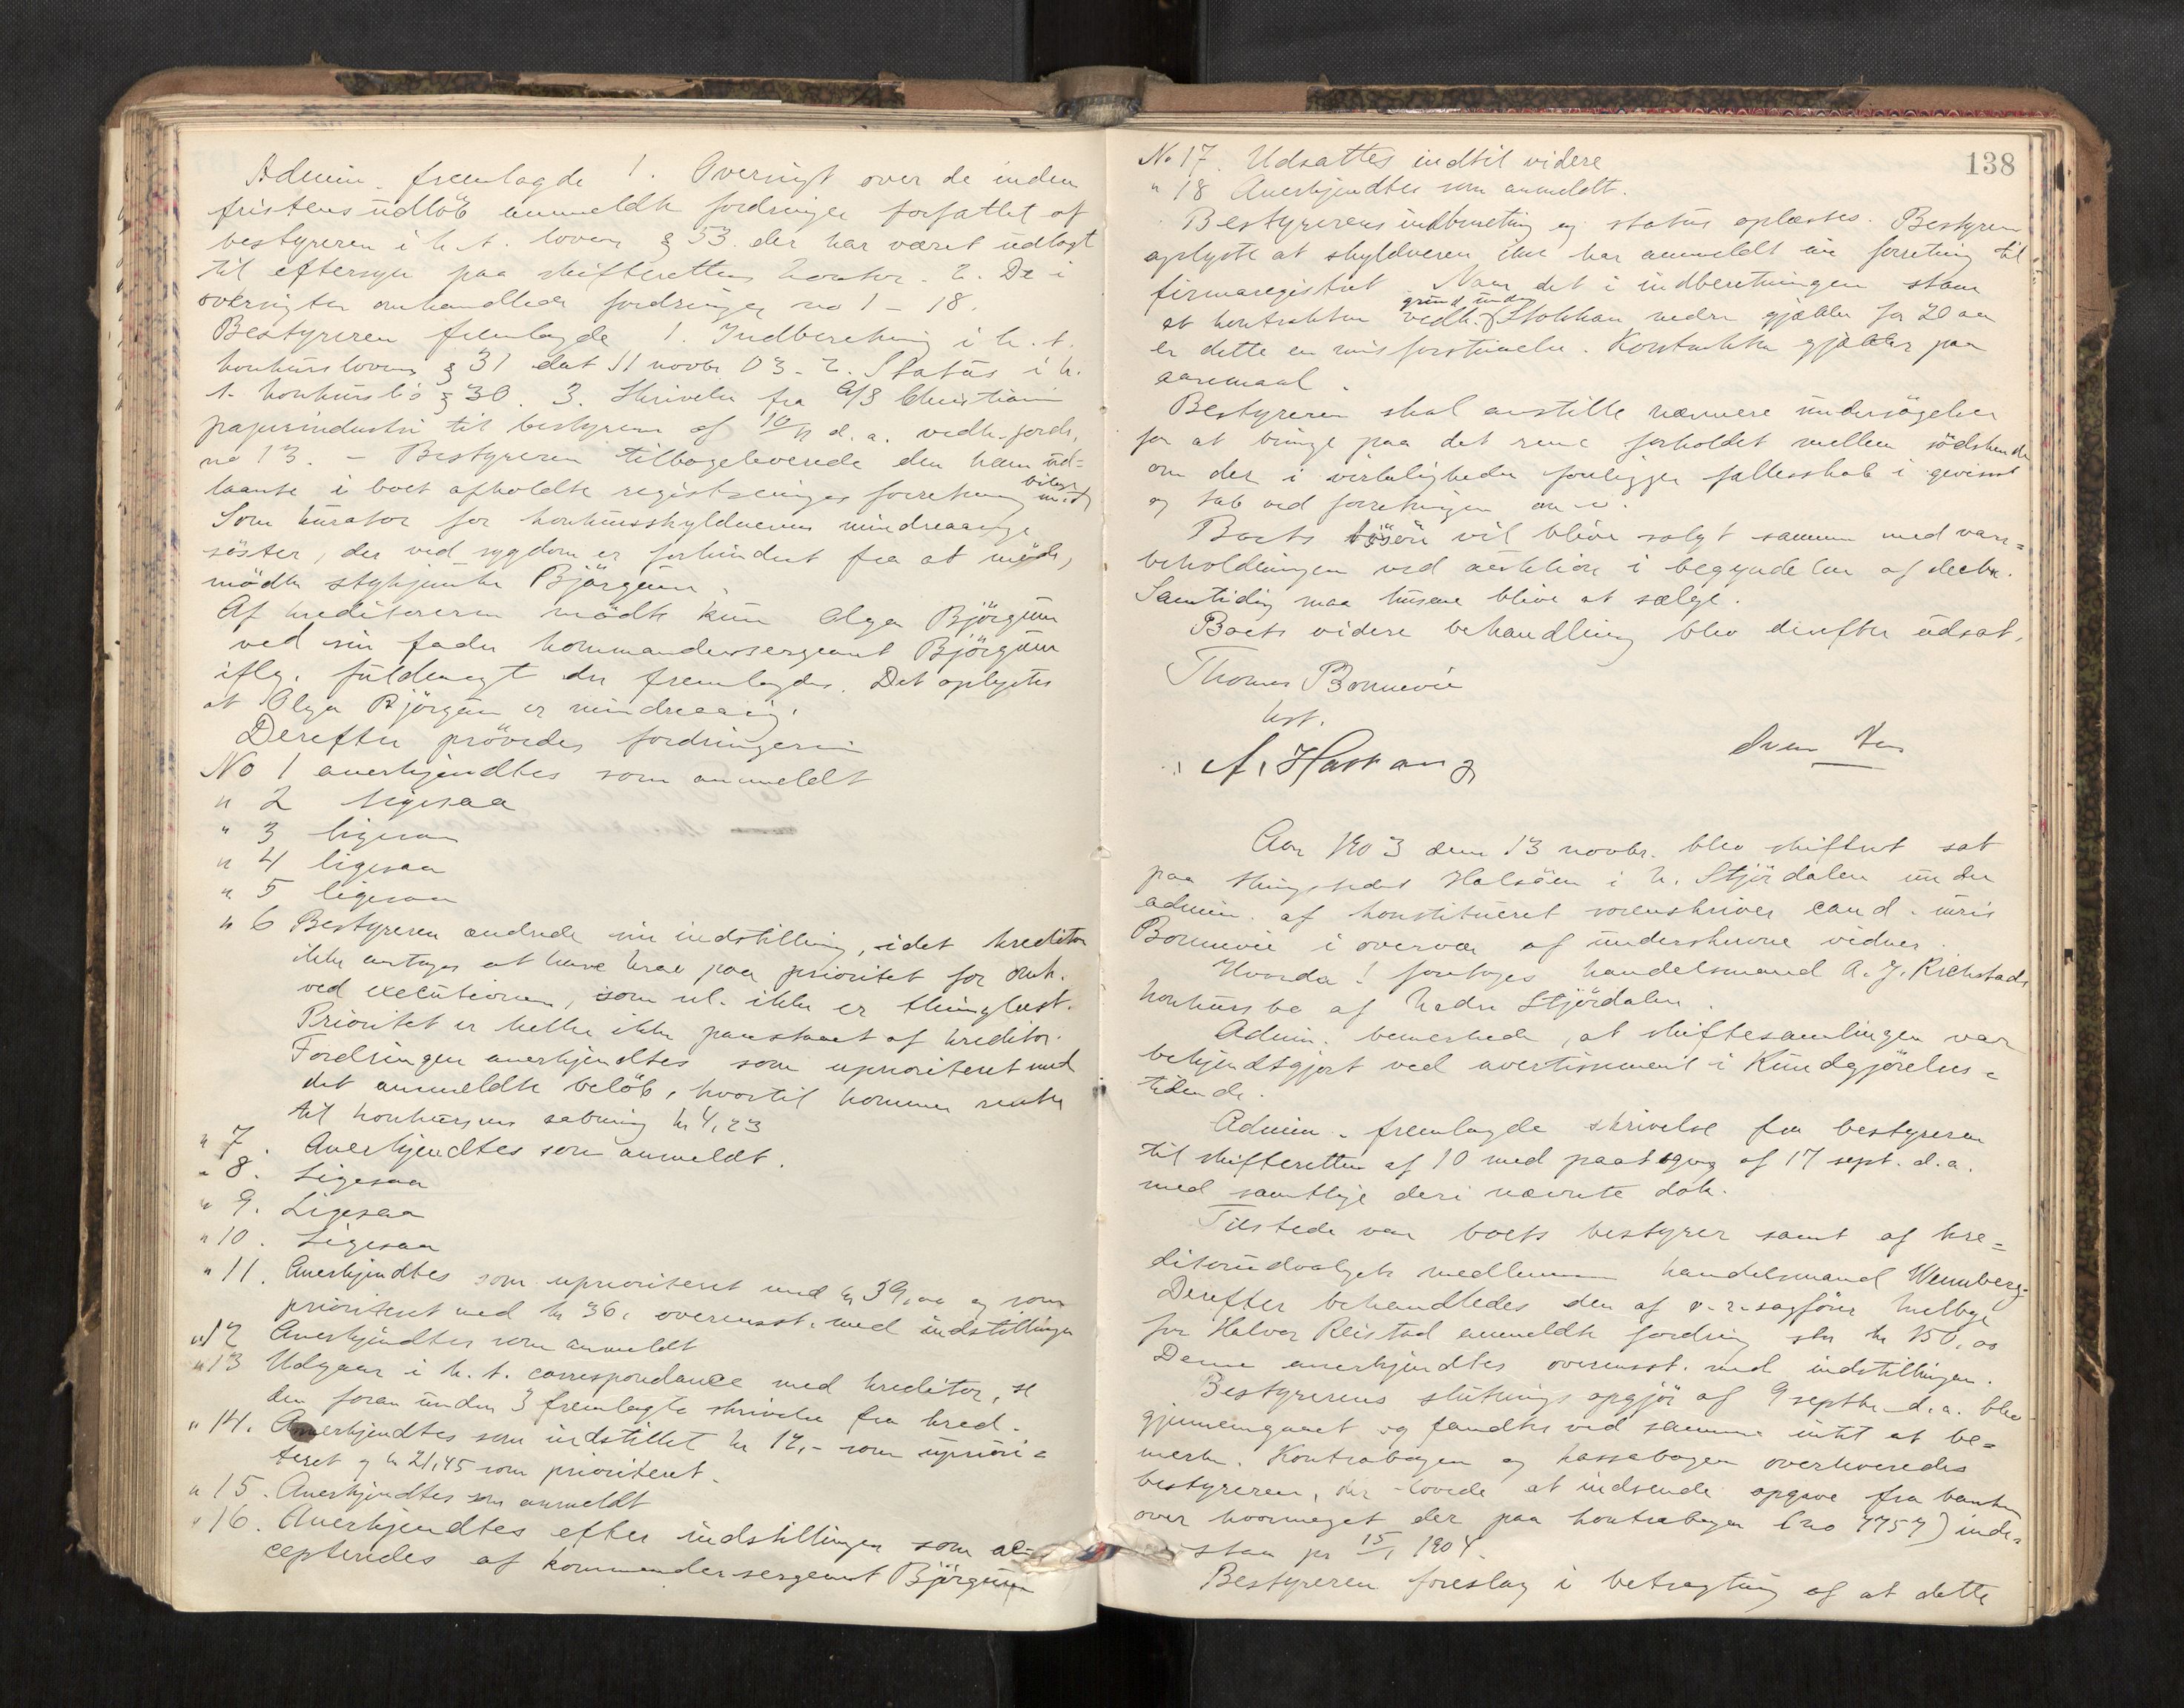 Admin. fremlagde 1. Oversigt over de inden
fristens udløb anmeldte fordringer forfattet af
bestyreren i h. t. loven § 53. der har været udlagt
til eftersyn paa skifterettens kontor. 2. De i
oversigten omhandlede fordringer no 1 - 18.
Bestyreren fremlagde 1. Indberetning i h. t.
konkursloven § 31 dat 11 novbr 03 - 2. Status i h.
t. konkursl's § 30. 3. Skrivelse fra A/S Christiania
papirindustri til bestyreren af 10/11 d. a. vedk. fordr.
no 13. - Bestyreren tilbageleverede den ham ud=
laante i boet afholdte registreringsforretning med bilag
Som kurator for konkursskyldnerens mindreaarige
søster, der ved sygdom er forhindret fra at møde,
mødte stykjunker Bjørgum.
Af kreditorerne mødte kun Olga Bjørgum
ved sin fader kommandersergeant Bjørgum
iflg. fuldmagt der fremlagdes. Det oplystes
at Olga Bjørgum er mindreaarig.
Derefter prøvedes fordringerne
No 1 anerkjendtes som anmeldt
" 2 ligesaa
" 3 ligesaa
" 4 ligesaa
" 5 ligesaa
" 6 Bestyreren ændrede sin indstilling, idet kreditor
ikke antages at have krav paa prioritet for omk.
ved executionen, som nl. ikke er thinglæst.
Prioritet er heller ikke paastaaet af kreditor.
Fordringen anerkjendtes som uprioriteret med
det anmeldte beløb, hvortil kommer renter
til konkursens aabning kr 4,23
" 7. Anerkjendtes som anmeldt.
" 8. Ligesaa
" 9. Ligesaa
" 10. Ligesaa
" 11. Anerkjendtes som uprioriteret med kr 39,00 og som
prioriteret med kr 36, overensst. med indstillingen
" 12 Anerkjendtes som anmeldt
" 13 Udgaar i h. t. correspondance med kreditor, se
den foran under 3 fremlagte skrivelse fra kred.
" 14. Anerkjendtes som indstillet kr 12,- som upriori=
teret og kr 21,45 som prioriteret.
" 15. Anerkjendtes som anmeldt
" 16. Anerkjendtes efter indstillingen som ac=
cepteredes af kommandersergeant Bjørgum
138
No 17. Udsattes indtil videre
" 18 Anerkjendtes som anmeldt.
Bestyrerens indberetning og status oplæstes. Bestyreren
oplyste at skyldneren ikke har anmeldt sin forretning til
firmaregistret. Naar det i indberetningen staar
at kontrakten vedk. grund under Stokkan nedre gjælder for 20 aar
er dette en misforstaaelse. Kontrakten gjælder paa
aaremaal.
Bestyreren skal anstille nærmere undersøgelser
for at bringe paa det rene forholdet mellem sødskende
om der i virkeligheden foreligger fællesskab i gevinst
og tab ved forretningen m. v.
Boets løsøre vil blive solgt sammen med vare=
beholdningen ved auktion i begyndelsen af decbr.
Samtidig maa husene blive at sælge.
Boets videre behandling blev derefter udsat.
Thomas Bonnevie
kst.
A. Hastang
Aar 1903 den 13 novbr. blev skifteret sat
paa thingstedet Halsøen i N. Stjørdalen under
admin. af konstitueret sorenskriver cand. juris
Bonnevie i overvær af underskrevne vidner.
Hvorda: foretoges handelsmand A. J. Richstads
konkursbo af Nedre Stjørdalen.
Admin. bemerkede, at skiftesamlingen var
bekjendtgjort ved avertissement i Kundgjørelses=
tidende.
Admin. fremlagde skrivelse fra bestyreren
til skifteretten af 10 med paategng af 17 sept. d. a.
med samtlige deri nævnte dok.
Tilstede var boets bestyrer samt af kre=
ditorudvalgets medlemmer handelsmand Wennberg.
Derefter behandledes den af o.r.sagfører Melbye
for Halvor Reistad anmeldte fordring stor kr 150,00
Denne anerkjendtes overensst. med indstillingen.
Bestyrerens slutningsopgjør af 9 septbr d. a. blev
gjennemgaaet og fandtes ved samme intet at be=
merke. Kontrabogen og kassabogen overleveredes
bestyreren, der lovede at indsende opgave fra banken
over hvormeget der paa kontrabogen (no 7757) inde=
staar pr 15/1 1904.
Bestyreren foreslog i betragtning af at dette